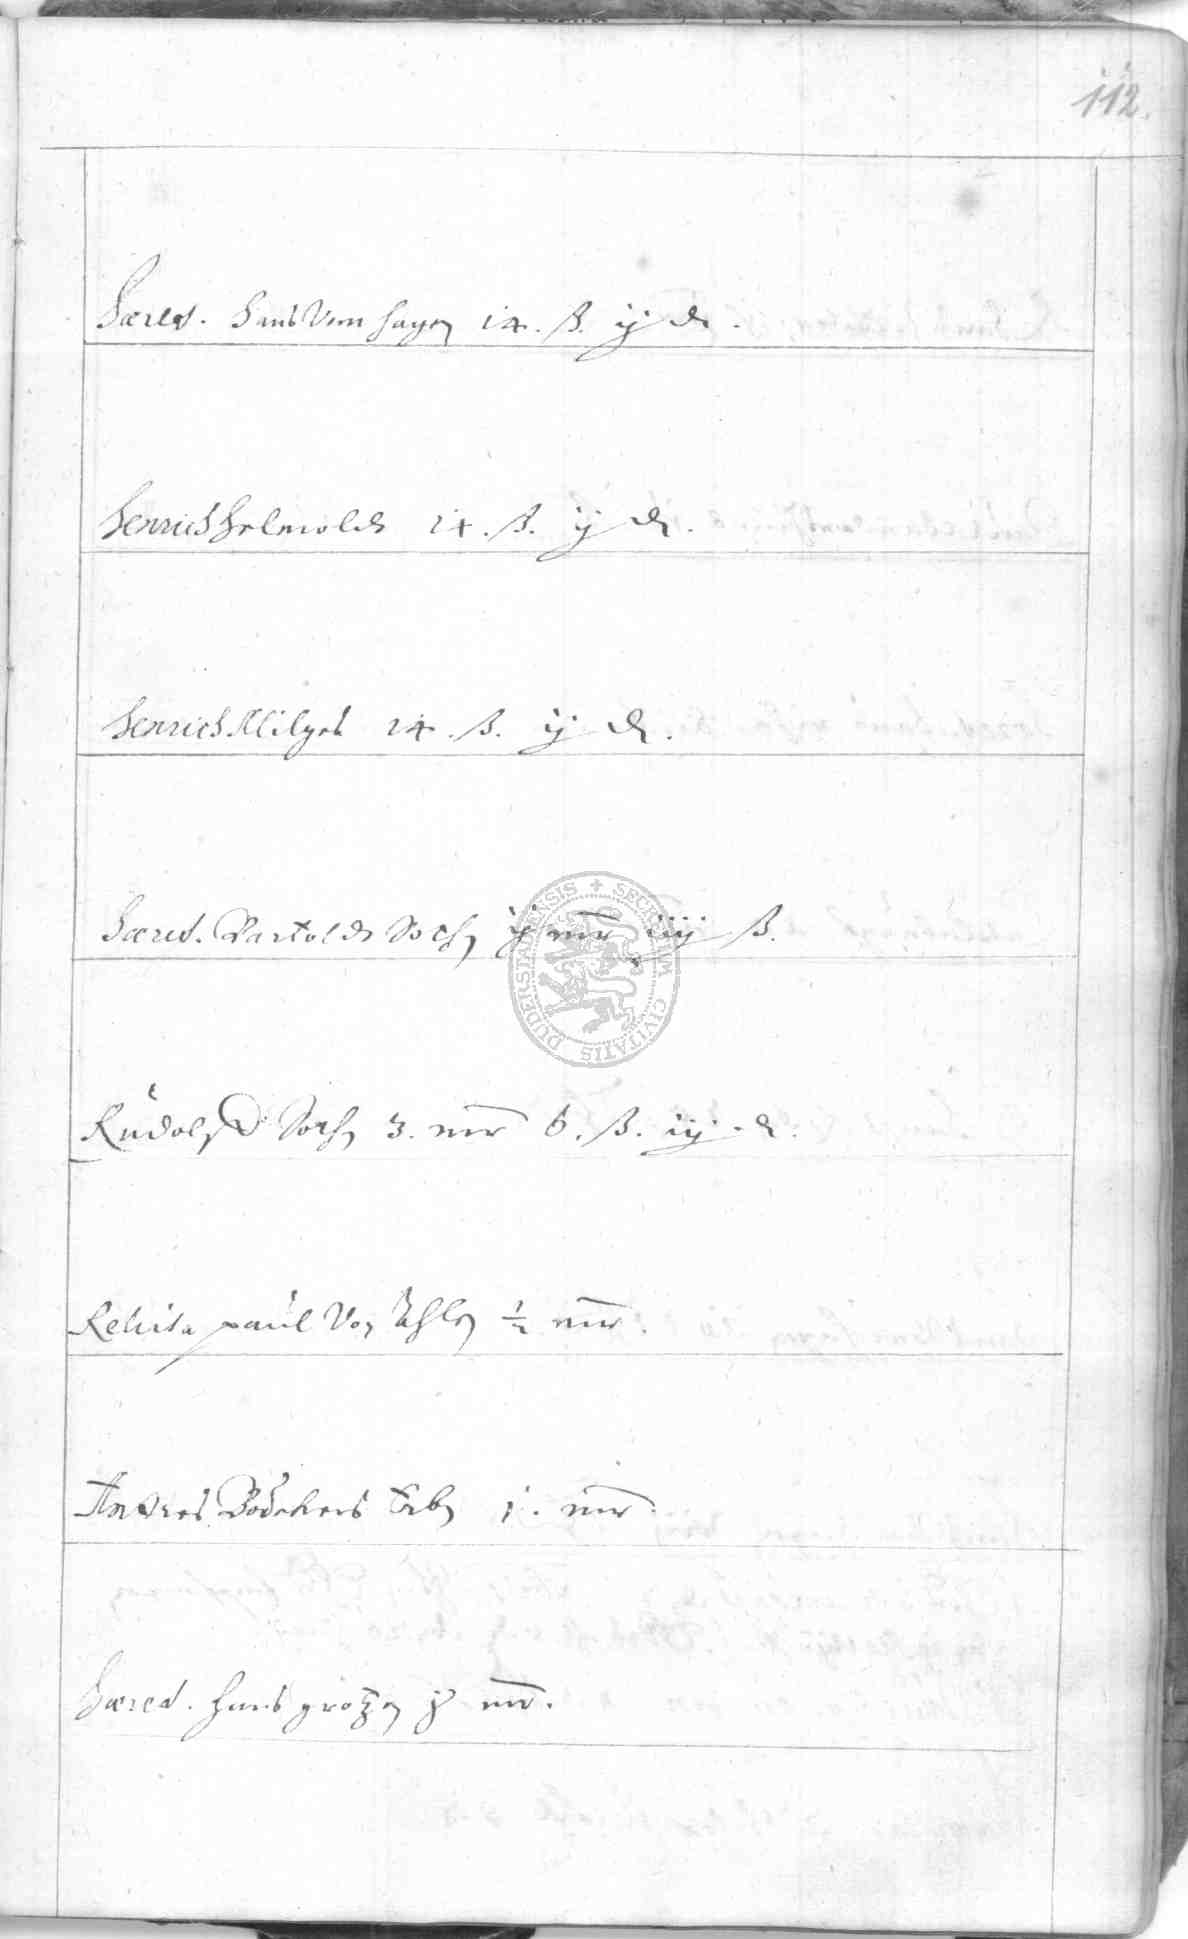 112.
Hæred. Hans Vom Hagen 14. ß. ij d.
Henrich Helmoldt 14. ß. ij d.
Henrich Hilges 14. ß. ij d.
Hæred. Bartoldt ij mr iiij ß.
Rudolff 3. mr 6. ß. iij d.
Relicta paul Von ½ mr.
Andres Bödekers Erben 1. mr.
Hæred. Hans mr.
SECRETUM CIVITATIS DUDERSTADENSIS